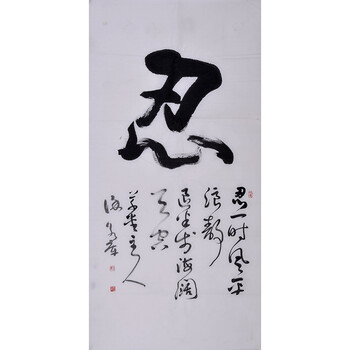 忍
忍一时风平
浪静
退半步海阔
天空
主人